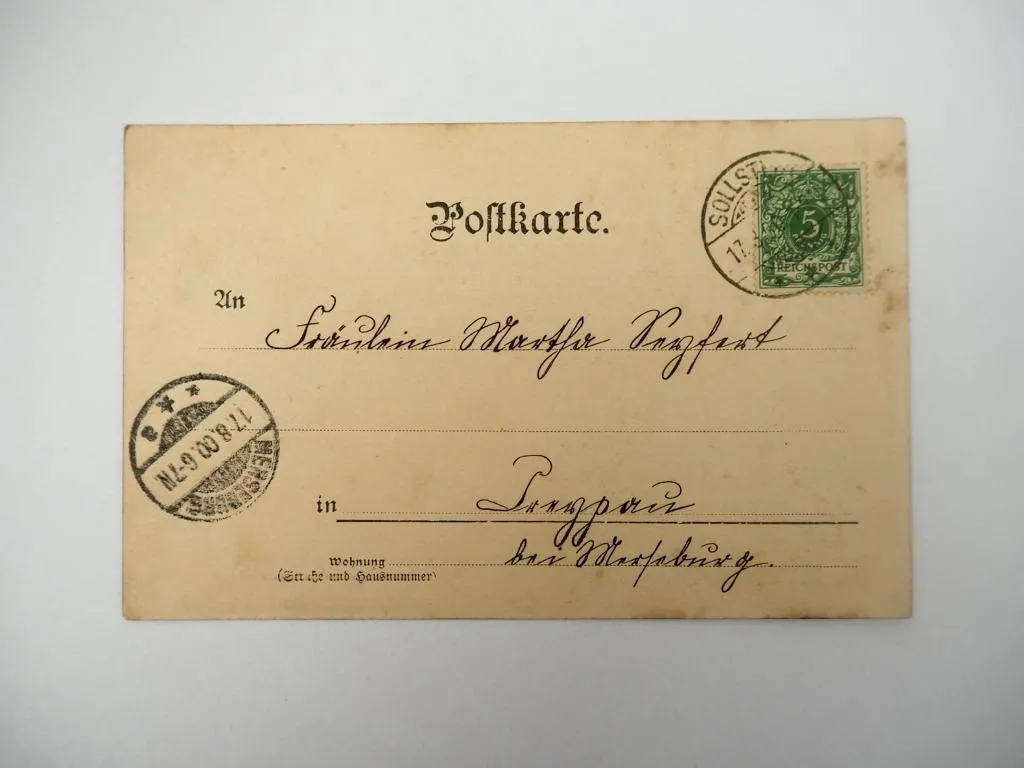 Postkarte.
SOLLST
17. 8
5
REICHSPOST
An
Fräulein Martha Seyfert
MERSEBURG
17.8.00.6-7N
in
Creypau
Wohnung
(Straße und Hausnummer)
bei Merseburg.